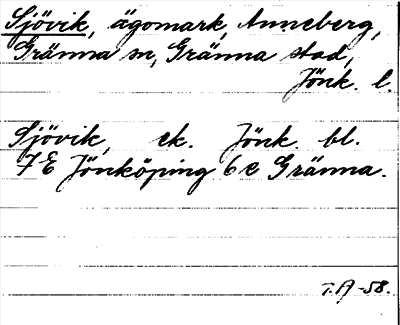 Sjövik, ägomark, Anneberg,
Gränna sn, Gränna stad,
Jönk. l.
Sjövik, ek. Jönk. bl.
7 E Jönköping 6 e Gränna.
T.A -58.